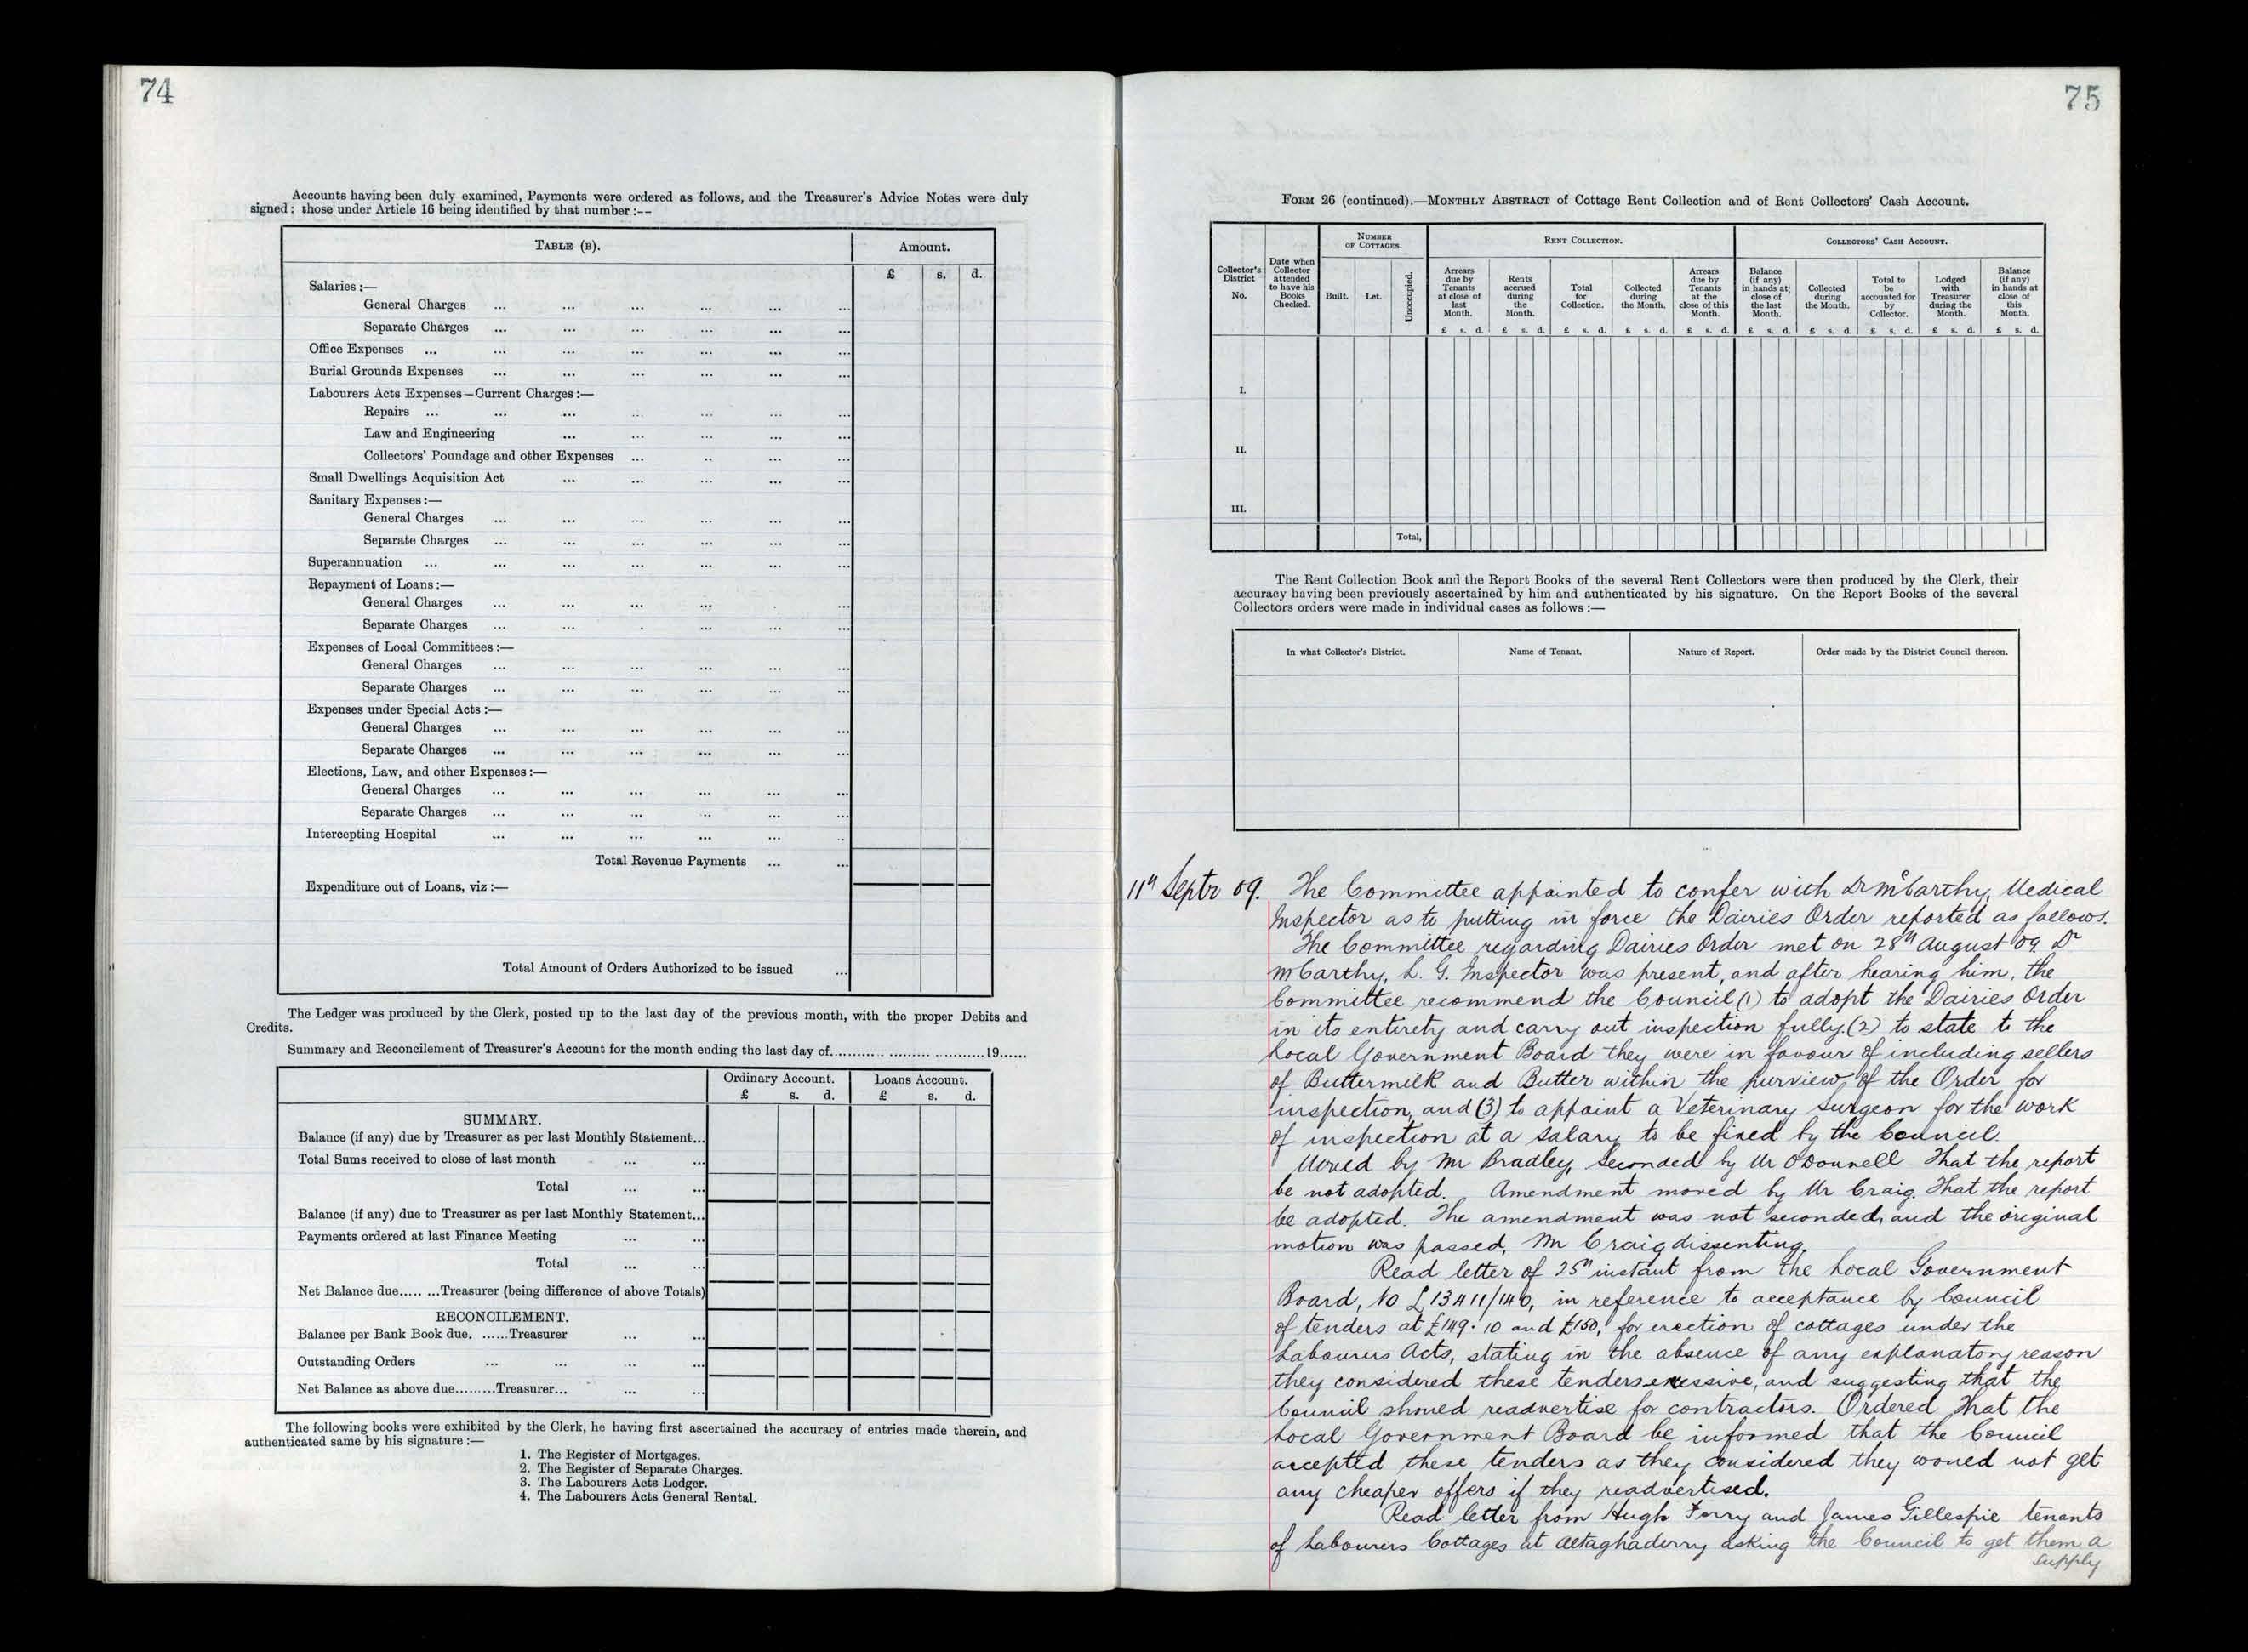 74
Accounts having been duly examined, Payments were ordered as follows, and the Treasurer's Advice Notes were duly
signed; those under Article 16 being identified by that number :--
TABLE (B). Amount.
£ s. d.
Salaries :—
General Charges ... ... ... ... ... ...
Separate Charges ... ... ... ... ... ...
Office Expenses ... ... ... ... ... ... ...
Burial Grounds Expenses ... ... ... ... ... ...
Labourers Acts Expenses—Current Charges :—
Repairs ... ... ... ... ... ... ...
Law and Engineering ... ... ... ... ...
Collectors' Poundage and other Expenses ... .. ... ...
Small Dwellings Acquisition Act ... ... ... ... ...
Sanitary Expenses :—
General Charges ... ... ... ... ... ...
Separate Charges ... ... ... ... ... ...
Superannuation ... ... ... ... ... ... ...
Repayment of Loans :—
General Charges ... ... ... ... . ...
Separate Charges ... ... . ... ... ...
Expenses of Local Committees :—
General Charges ... ... ... ... ... ...
Separate Charges ... ... ... ... ... ...
Expenses under Special Acts :—
General Charges ... ... ... ... ... ...
Separate Charges ... ... ... ... ... ...
Elections, Law, and other Expenses :—
General Charges ... ... ... ... ... ...
Separate Charges ... ... ... ... ... ...
Intercepting Hospital ... ... ... ... ... ..
Total Revenue Payments ... ...
Expenditure out of Loans, viz :—
Total Amount of Orders Authorized to be issued ...
The Ledger was produced by the Clerk, posted up to the last day of the previous month, with the proper Debits and
Credits.
Summary and Reconcilement of Treasurer's Account for the month ending the last day of..............................19......
Ordinary Account. Loans Account.
£ s. d. £ s. d.
SUMMARY.
Balance (if any) due by Treasurer as per last Monthly Statement...
Total Sums received to close of last month ... ...
Total ... ...
Balance (if any) due to Treasurer as per last Monthly Statement...
Payments ordered at last Finance Meeting ... ...
Total ... ...
Net Balance due..... ...Treasurer (being difference of above Totals)
RECONCILEMENT.
Balance per Bank Book due. ......Treasurer ... ...
Outstanding Orders ... ... .. ...
Net Balance as above due.........Treasurer... ... ...
The following books were exhibited by the Clerk, he having first ascertained the accuracy of entries made therein, and
authenticated same by his signature :—
1. The Register of Mortgages.
2. The Register of Separate Charges.
3. The Labourers Acts Ledger.
4. The Labourers Acts General Rental.
75
FORM 26 (continued).—MONTHLY ABSTRACT of Cottage Rent Collection and of Rent Collectors' Cash Account.
Collector's District No.
Date when Collector attended to have his Books Checked.
NUMBER OF COTTAGES.
Built. Let. Unoccupied.
RENT COLLECTION.
Arrears due by Tenants at close of last Month.
Rents accrued during the Month.
Total for Collection.
Collected during the Month.
Arrears due by Tenants at the close of this Month.
COLLECTORS' CASH ACCOUNT.
Balance (if any) in hands at close of the last Month.
Collected during the Month.
Total to be accounted for by Collector.
Lodged with Treasurer during the Month.
Balance (if any) in hands at close of this Month.
£ s. d. £ s. d. £ s. d. £ s. d. £ s. d. £ s. d. £ s. d. £ s. d. £ s. d. £ s. d.
I.
II.
III.
Total,
The Rent Collection Book and the Report Books of the several Rent Collectors were then produced by the Clerk, their
accuracy having been previously ascertained by him and authenticated by his signature. On the Report Books of the several
Collectors orders were made in individual cases as follows :—
In what Collector's District. Name of Tenant. Nature of Report. Order made by the District Council thereon.
11th Septr 09. The Committee appointed to confer with Dr McCarthy, Medical
Inspector as to putting in force the Dairies Order reported as follows.
The Committee regarding Dairies Order met on 28th August 09. Dr
McCarthy, L. G. Inspector was present, and after hearing him, the
Committee recommend the Council (1) to adopt the Dairies Order
in its entirety and carry out inspection fully. (2) to state to the
Local Government Board they were in favour of including sellers
of Buttermilk and Butter within the purview of the Order for
inspection, and (3) to appoint a Veterinary Surgeon for the work
of inspection at a salary to be fixed by the Council.
Moved by Mr Bradley, Seconded by Mr O'Donnell That the report
be not adopted. Amendment moved by Mr Craig. That the report
be adopted. The amendment was not seconded, and the original
motion was passed, Mr Craig dissenting.
Read letter of 25th instant from the Local Government
Board, No in reference to acceptance by Council
of tenders at £149·10 and £150, for erection of cottages under the
Labourers Acts, stating in the absence of any explanatory reason
they considered these tenders excessive, and suggesting that the
Council should readvertise for contractors. Ordered That the
Local Government Board be informed that the Council
accepted these tenders as they considered they would not get
any cheaper offers if they readvertised.
Read letter from Hugh Ferry and James Gillespie tenants
of Labourers Cottages at Altaghaderry asking the Council to get them a
supply